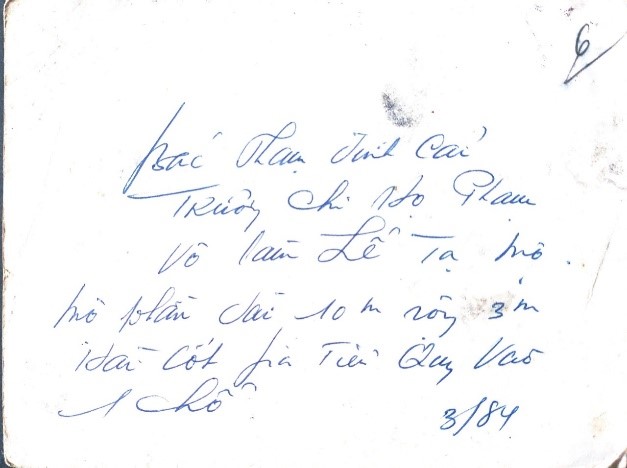 6
Bác Phạm Đình Cải
Trưởng Chi Họ Phạm
Vô làm Lễ Tạ mộ.
mộ phần dài 10m rộng 3m
Hài Cốt gia Tiên Quy Vào
1 Chỗ
3/84